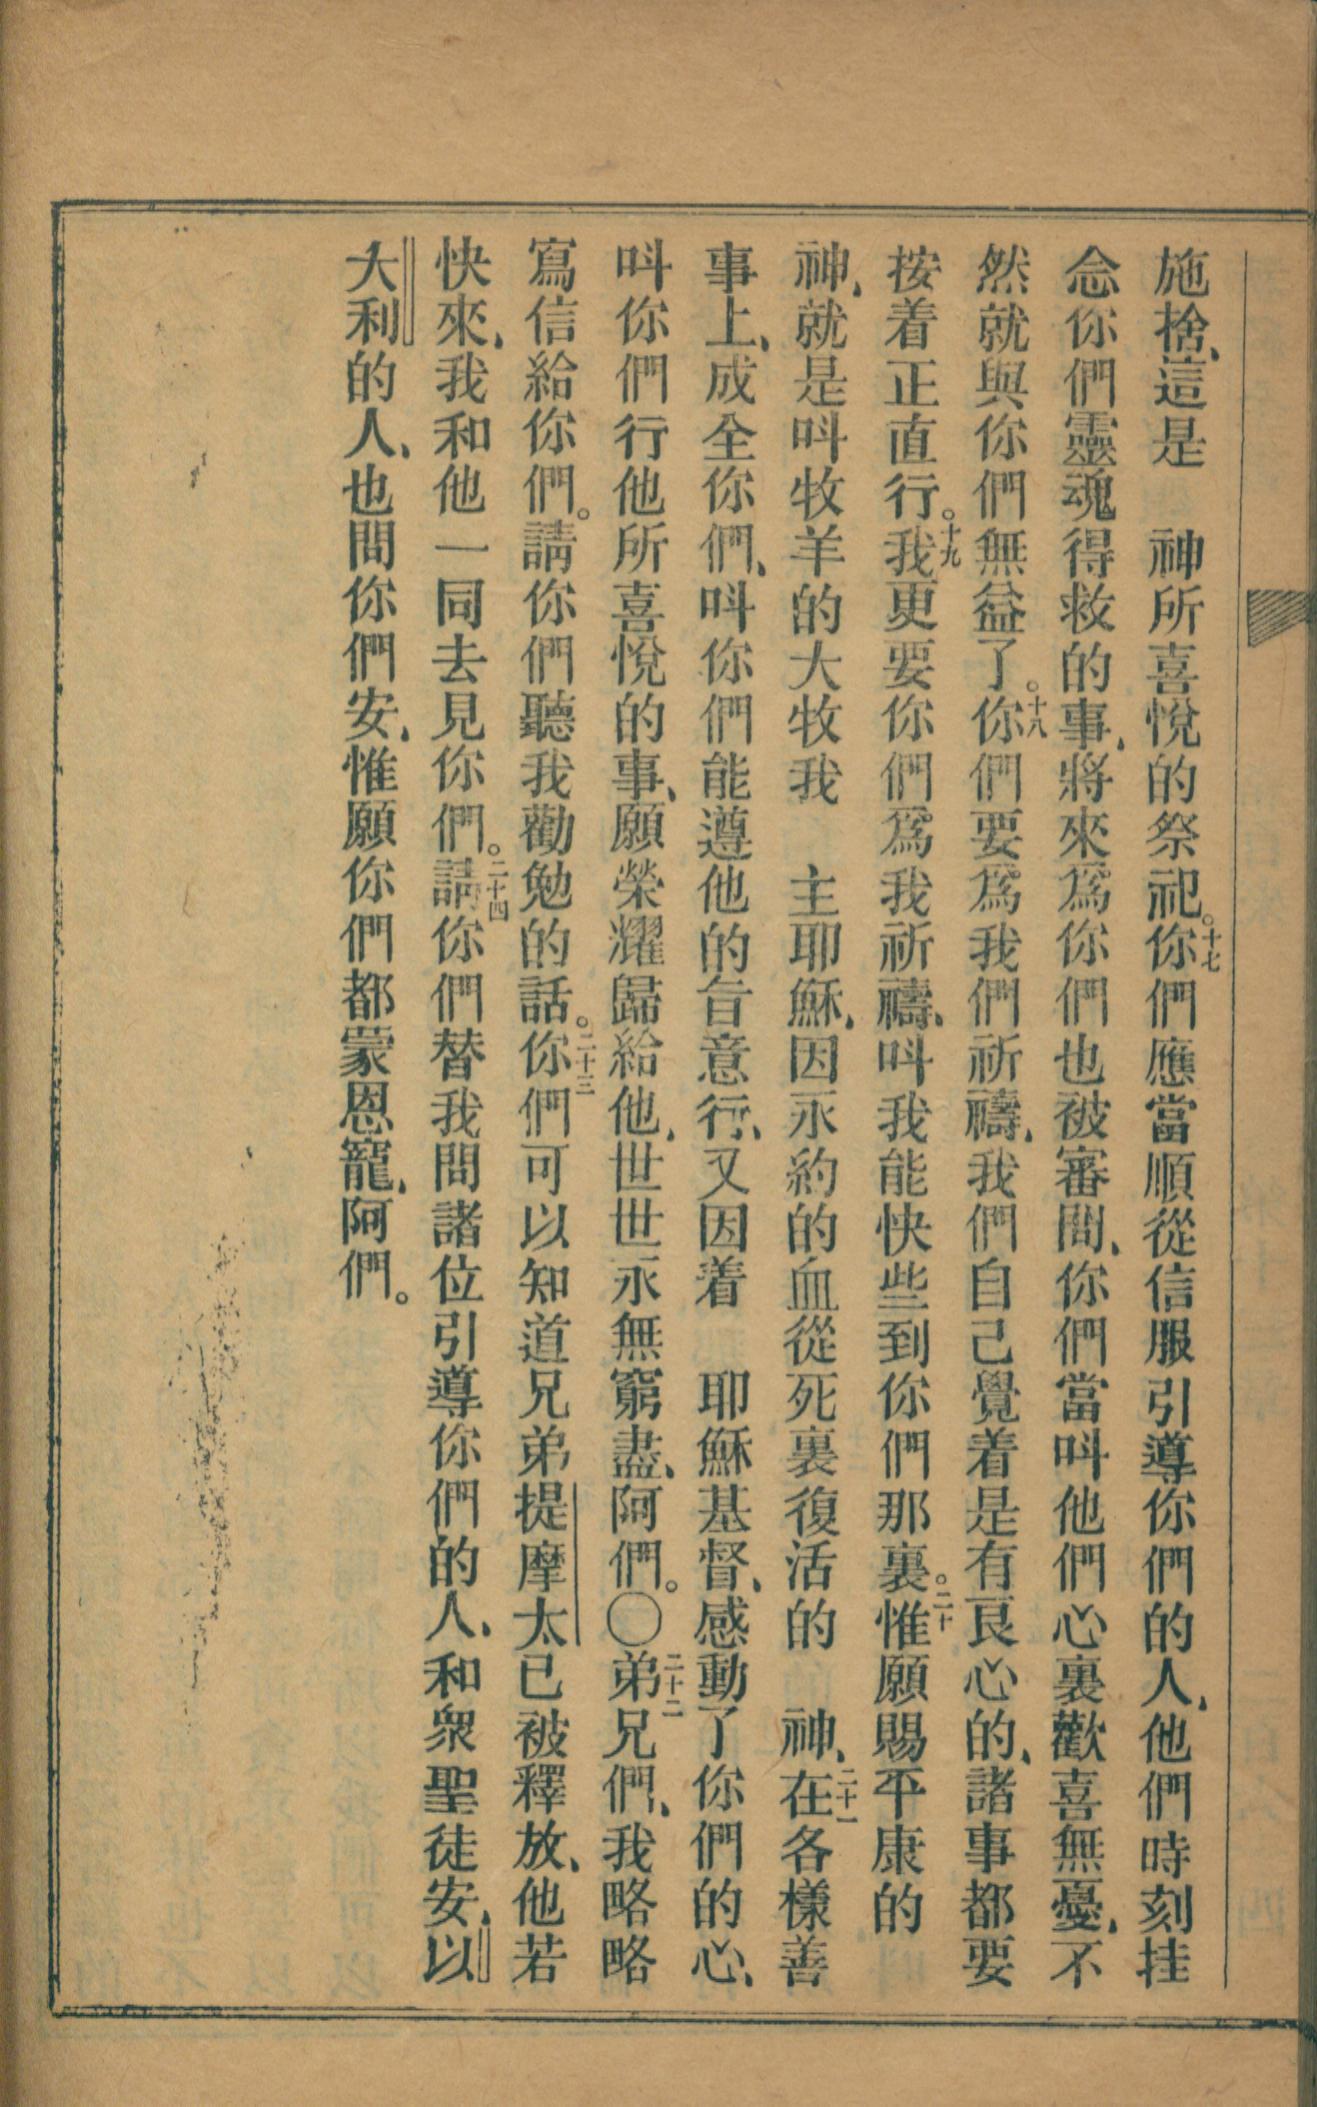 施捨、這是　神所喜悅的祭祀。十七你們應當順從信服引導你們的人、他們時刻挂
念你們靈魂得救的事、將來爲你們也被審問、你們當呌他們心裏歡喜無憂、不
然就與你們無益了。十八你們要爲我們祈禱、我們自己覺着是有良心的、諸事都要
按着正直行。十九我更要你們爲我祈禱、呌我能快些到你們那裏。二十惟願賜平康的
神、就是呌牧羊的大牧我　主耶穌、因永約的血從死裏復活的　神、二十一在各樣善
事上、成全你們、呌你們能遵他的旨意行、又因着　耶穌基督、感動了你們的心、
呌你們行他所喜悅的事、願榮耀歸給他、世世永無窮盡、阿們。〇二十二弟兄們、我略略
寫信給你們。請你們聽我勸勉的話。二十三你們可以知道兄弟提摩太已被釋放、他若
快來、我和他一同去見你們。二十四請你們替我問諸位引導你們的人、和衆聖徒安、以
大利的人、也問你們安、惟願你們都蒙恩寵、阿們。